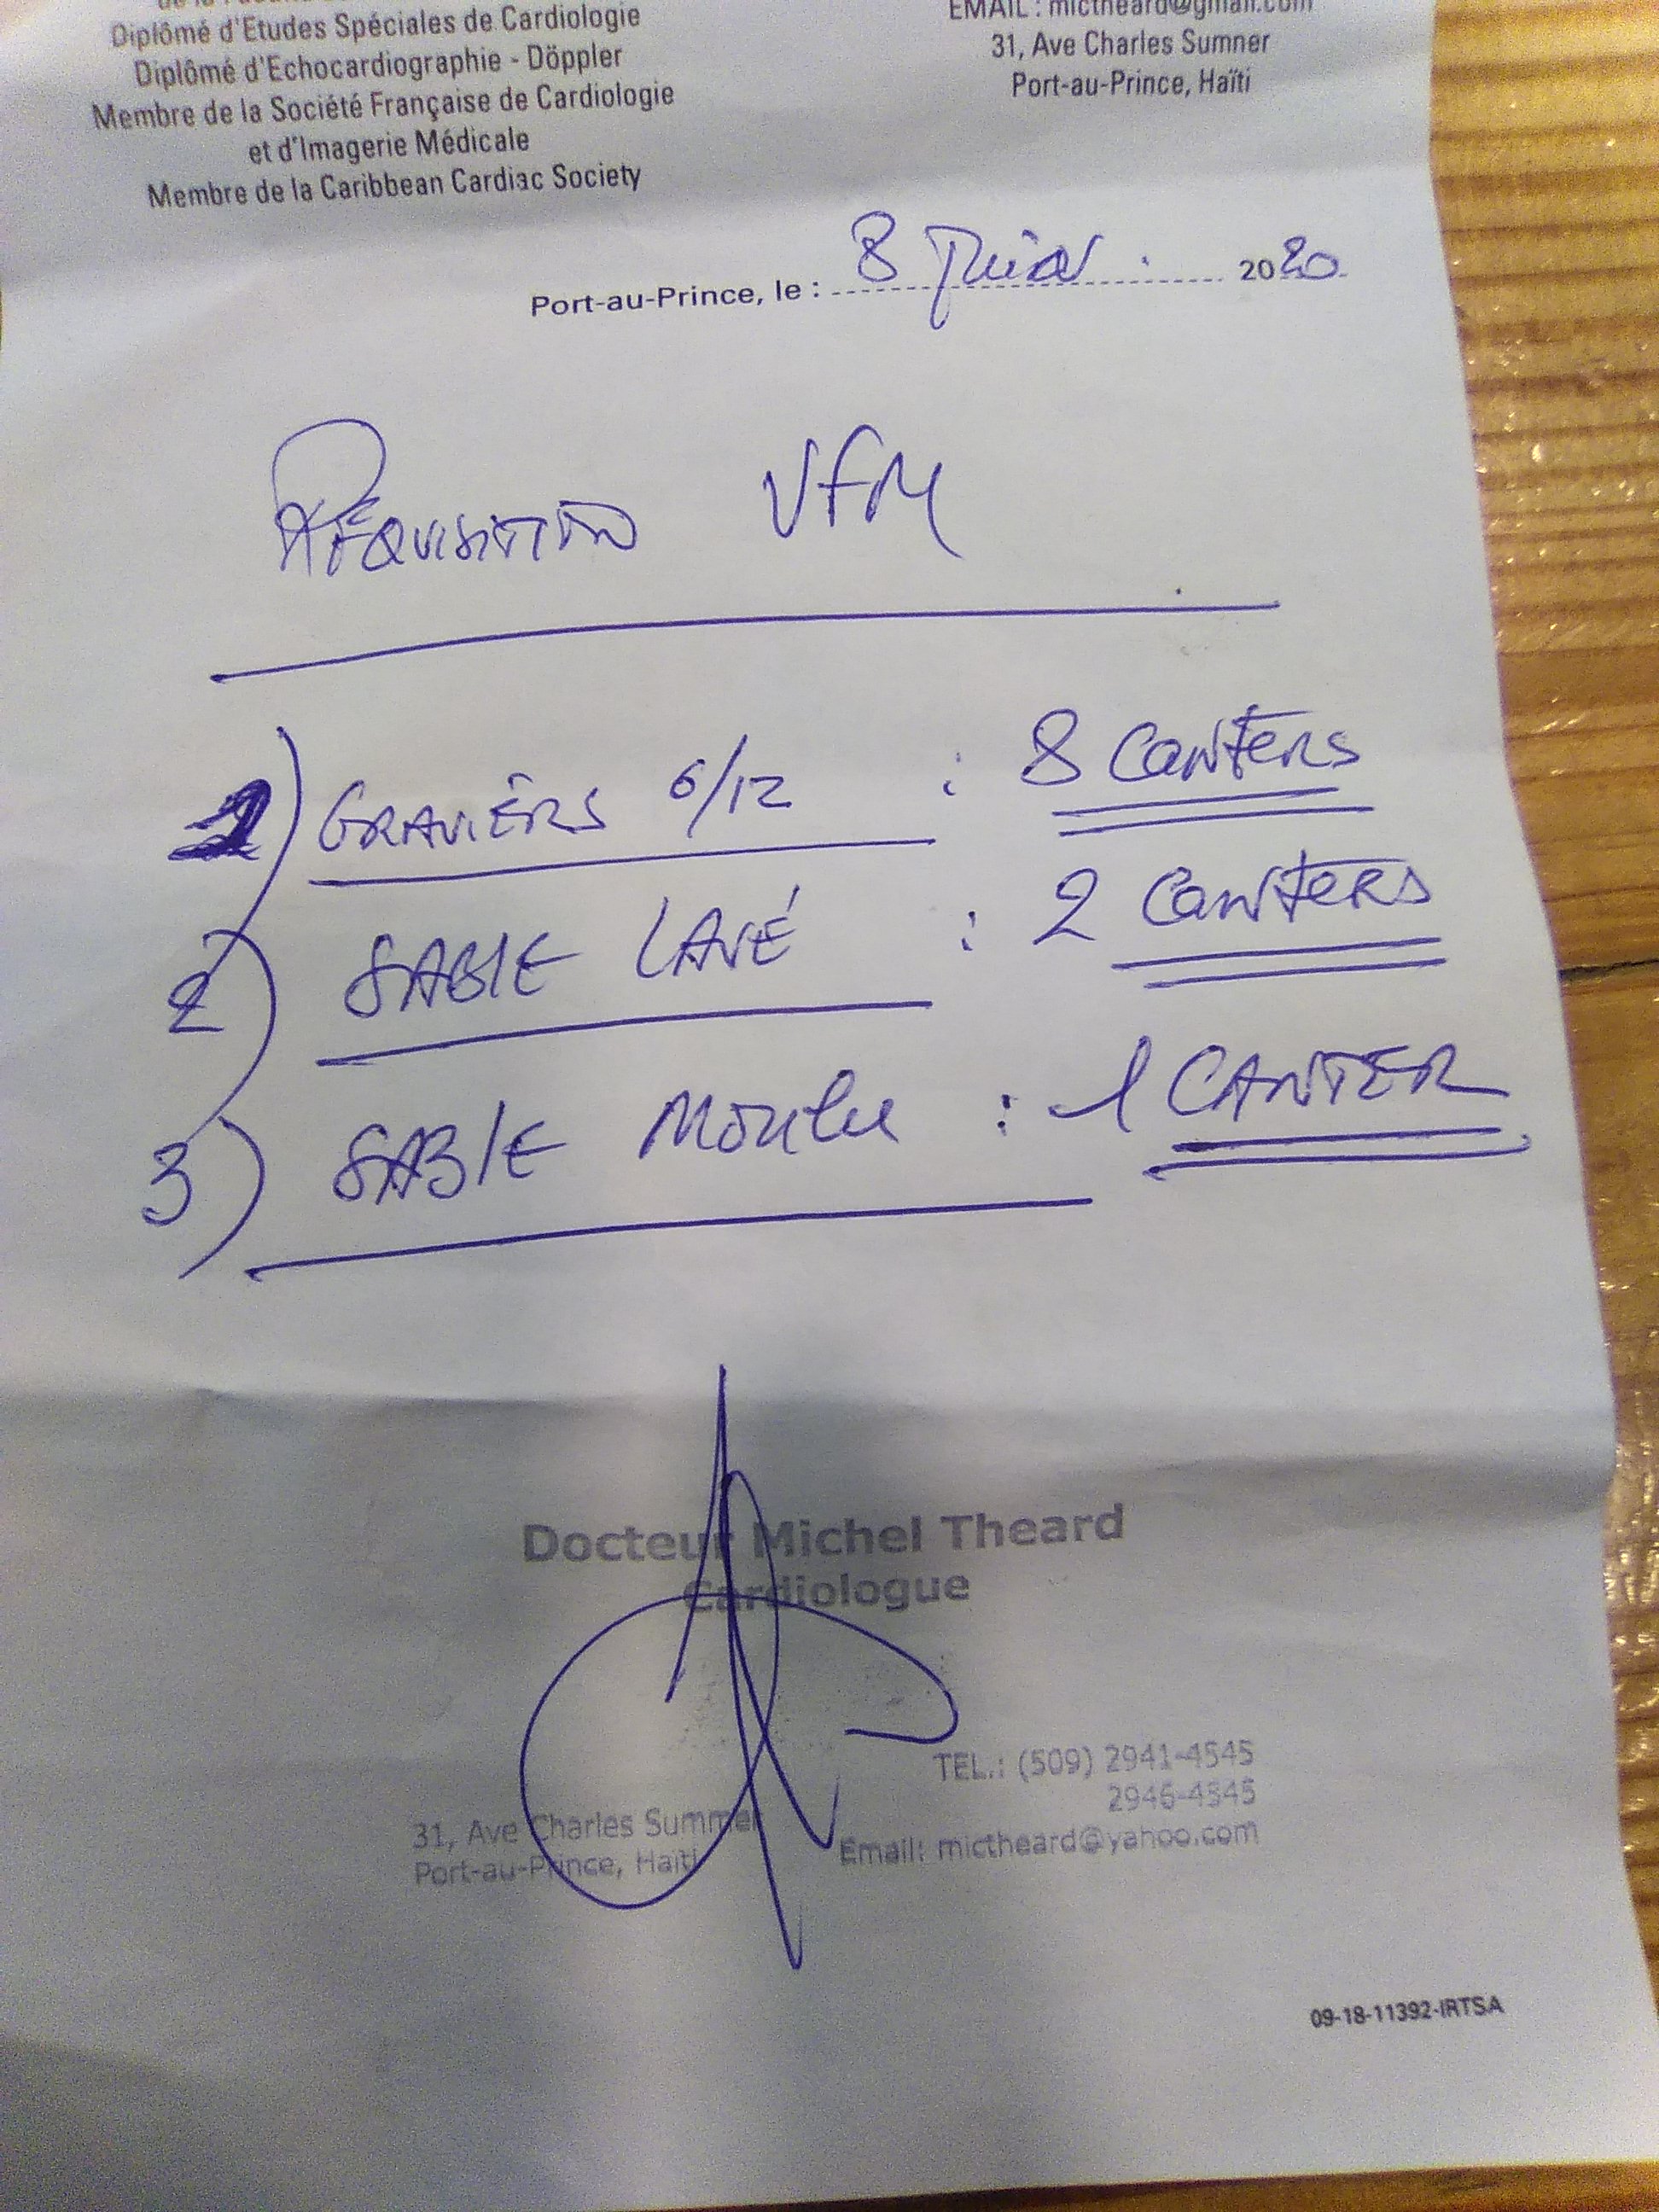 Diplômé d'Etudes Spéciales de Cardiologie
Diplômé d'Echocardiographie - Döppler
Membre de la Société Française de Cardiologie
et d'Imagerie Médicale
Membre de la Caribbean Cardiac Society
EMAIL : mictheard@gmail.com
31, Ave Charles Sumner
Port-au-Prince, Haïti
Port-au-Prince, le : 8 Juin 2020
Réquisition VFM
1) GRAVIERS 6/12 : 8 CANTERS
2) SABLE LAVÉ : 2 CANTERS
3) SABLE Moulu : 1 CANTER
Docteur Michel Theard
Cardiologue
TEL.: (509) 2941-4545
2946-4545
31, Ave Charles Summer
Port-au-Prince, Haiti
Email: mictheard@yahoo.com
09-18-11392-IRTSA